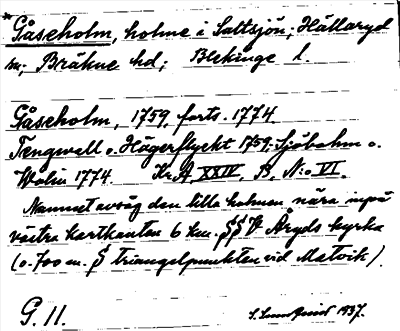 *Gåseholm, holme i Saltsjön; Hällaryd
sn; Bräkne hd; Blekinge l.
Gåseholm, 1759, forts. 1774
Tengwall o. Hägerflycht 1759; Sjöbohm o.
Wolin 1774. Kr.A XXIV, B, N:o VI.
Namnet avsåg den lilla holmen nära invid
västra kartkanten 6 km. §§V Åryds kyrka
(o. 700 m. § triangelpunkten vid Matvik).
G. 11. 1937.